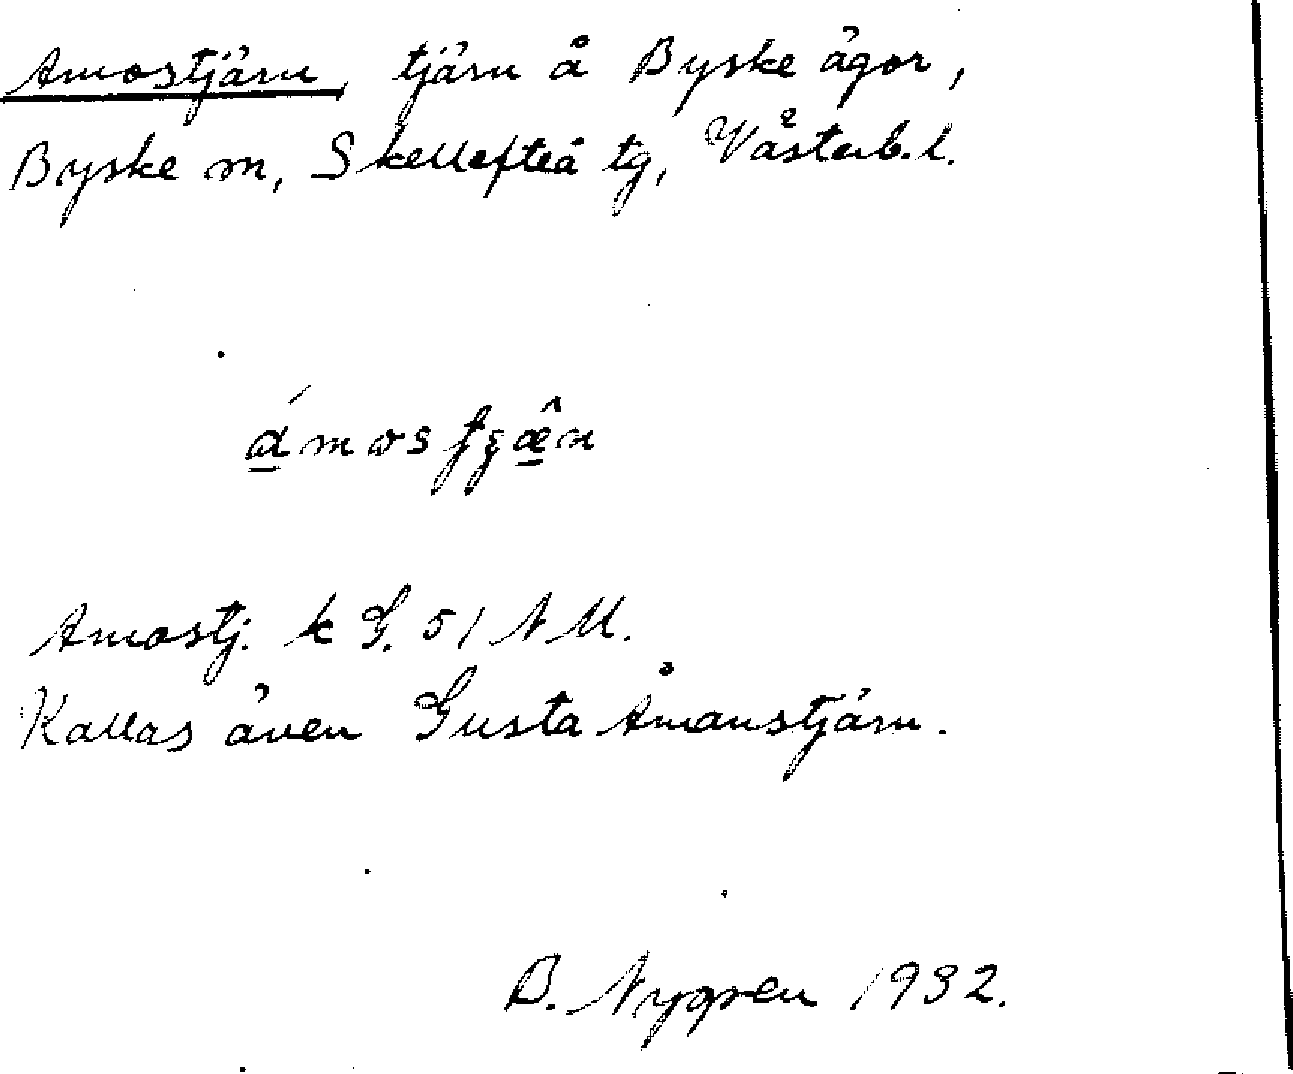 Amostjärn, tjärn å Byske ägor,
Byske sn, Skellefteå tg, Västerb. l.
Amostj. k G. 51 N M.
Kallas även Gusta Åmanstjärn.
B. Nygren 1932.